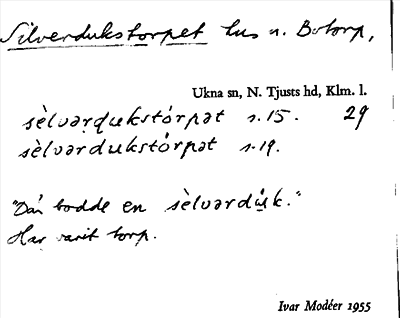 Silverdukstorpet hus u. Botorp,
Ukna sn, N. Tjusts hd, Klm. l.
sèlvərdukstórpət s. 15. 29
sèlvərdukstórpət s. 19.
"Där bodde en sèlvərdúk."
Har varit torp.
Ivar Modéer 1955